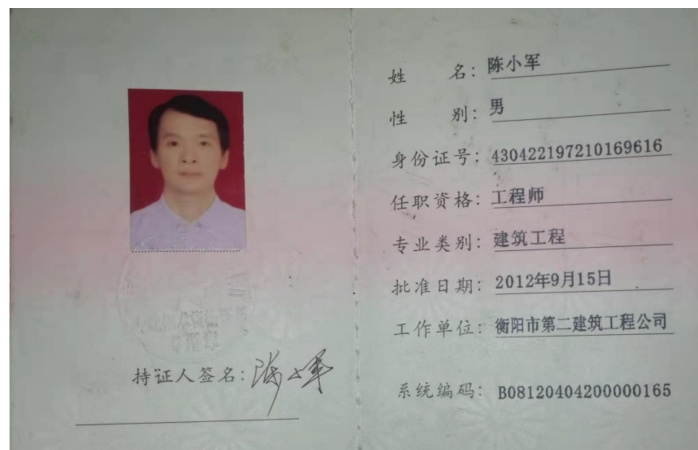 姓名：陈小军
性别：男
身份证号：430422197210169616
任职资格：工程师
专业类别：建筑工程
批准日期：2012年9月15日
工作单位：衡阳市第二建筑工程公司
系统编码：B08120404200000165
持证人签名：陈小军